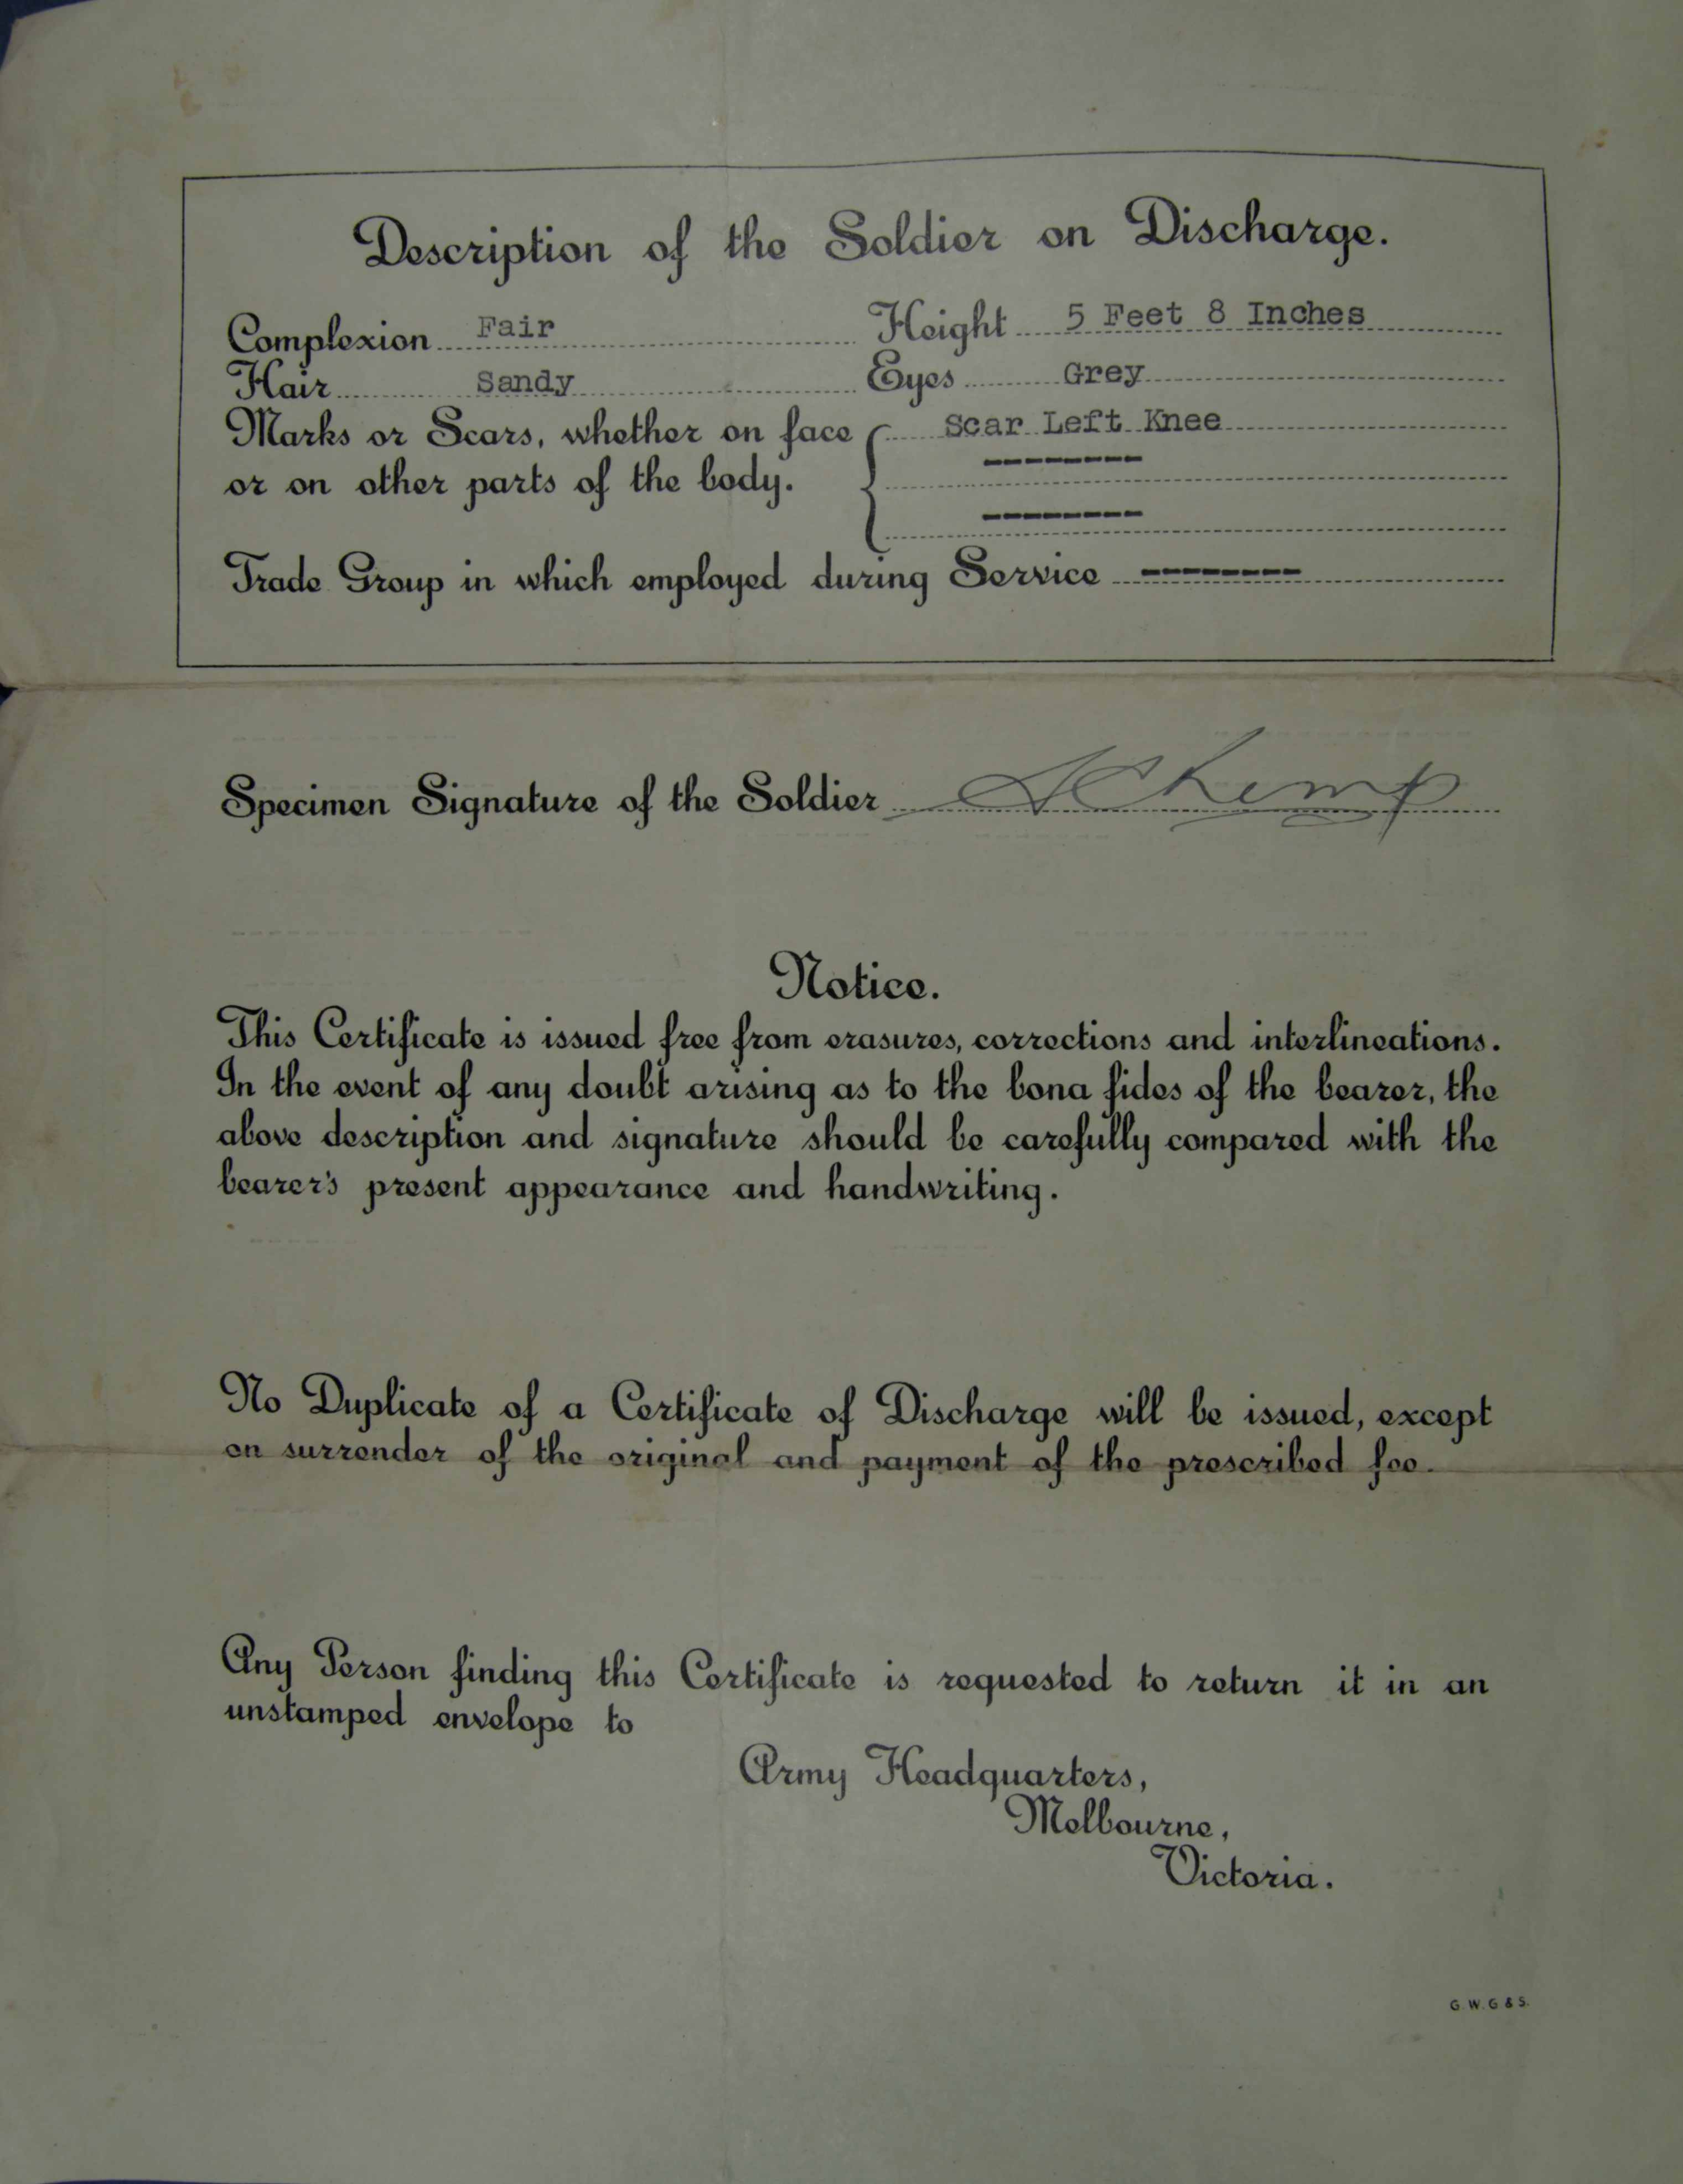 Description of the Soldier on Discharge.
Complexion Fair Height 5 Feet 8 Inches
Hair Sandy Eyes Grey
Marks or Scars, whether on face Scar Left Knee
or on other parts of the body.
Trade Group in which employed during Service
Specimen Signature of the Soldier Kemp
Notice.
This Certificate is issued free from erasures, corrections and interlineations.
In the event of any doubt arising as to the bona fides of the bearer, the
above description and signature should be carefully compared with the
bearer's present appearance and handwriting.
No Duplicate of a Certificate of Discharge will be issued, except
on surrender of the original and payment of the prescribed fee.
Any Person finding this Certificate is requested to return it in an
unstamped envelope to
Army Headquarters,
Melbourne,
Victoria.
G. W. G & S.